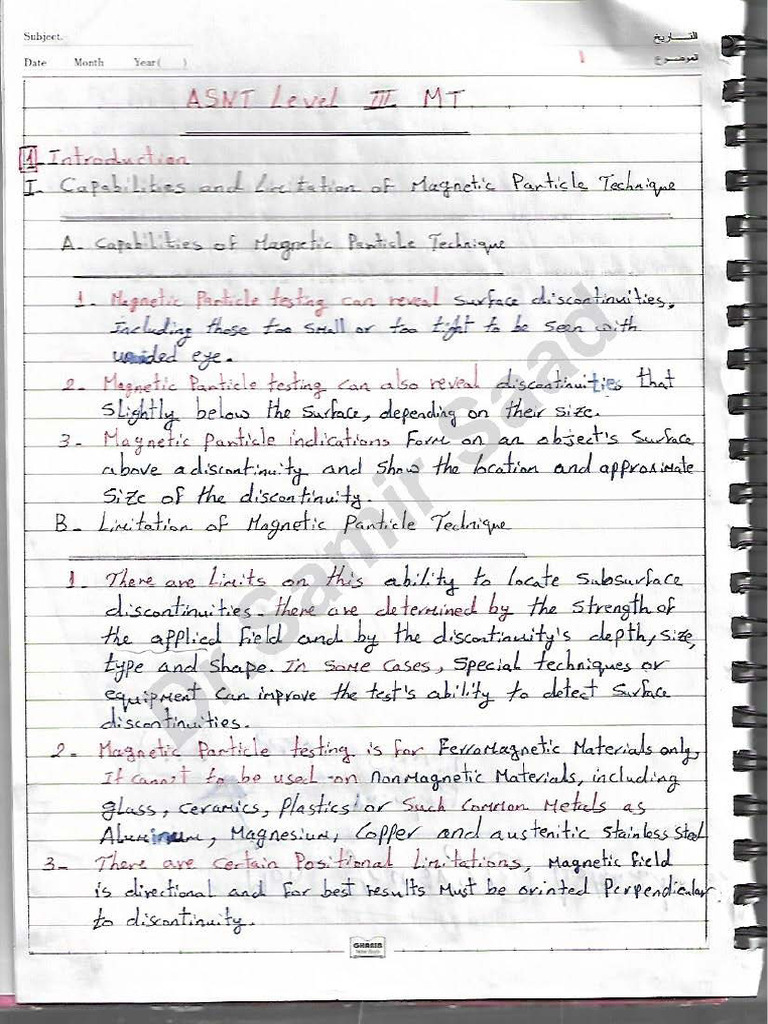 Subject.
التـــاريخ
Date Month Year( )
الموضـــوع
1
ASNT Level III MT
1 - Introduction
I- Capabilities and Limitation of Magnetic Particle Technique
A- Capabilities of Magnetic Particle Technique
1- Magnetic Particle testing can reveal surface discontinuities,
Including those too small or too tight to be seen with
unaided eye.
2- Magnetic Particle testing can also reveal discontinuities that
slightly below the surface, depending on their size.
3- Magnetic Particle indications Form on an object's surface
above a discontinuity and show the location and approximate
size of the discontinuity.
B- Limitation of Magnetic Particle Technique
1- There are limits on this ability to locate subsurface
discontinuities. there are determined by the strength of
the applied field and by the discontinuity's depth, size,
type and shape. In some cases, special techniques or
equipment can improve the test's ability to detect surface
discontinuities.
2- Magnetic Particle testing is for FerroMagnetic Materials only,
It cannot to be used on nonMagnetic Materials, including
glass, ceramics, plastics or such common Metals as
Aluminum, Magnesium, Copper and austenitic stainless steel
3- There are certain Positional Limitations, Magnetic field
is directional and for best results Must be orinted Perpendicular
to discontinuity.
GHASIB
Dr Samir Saad